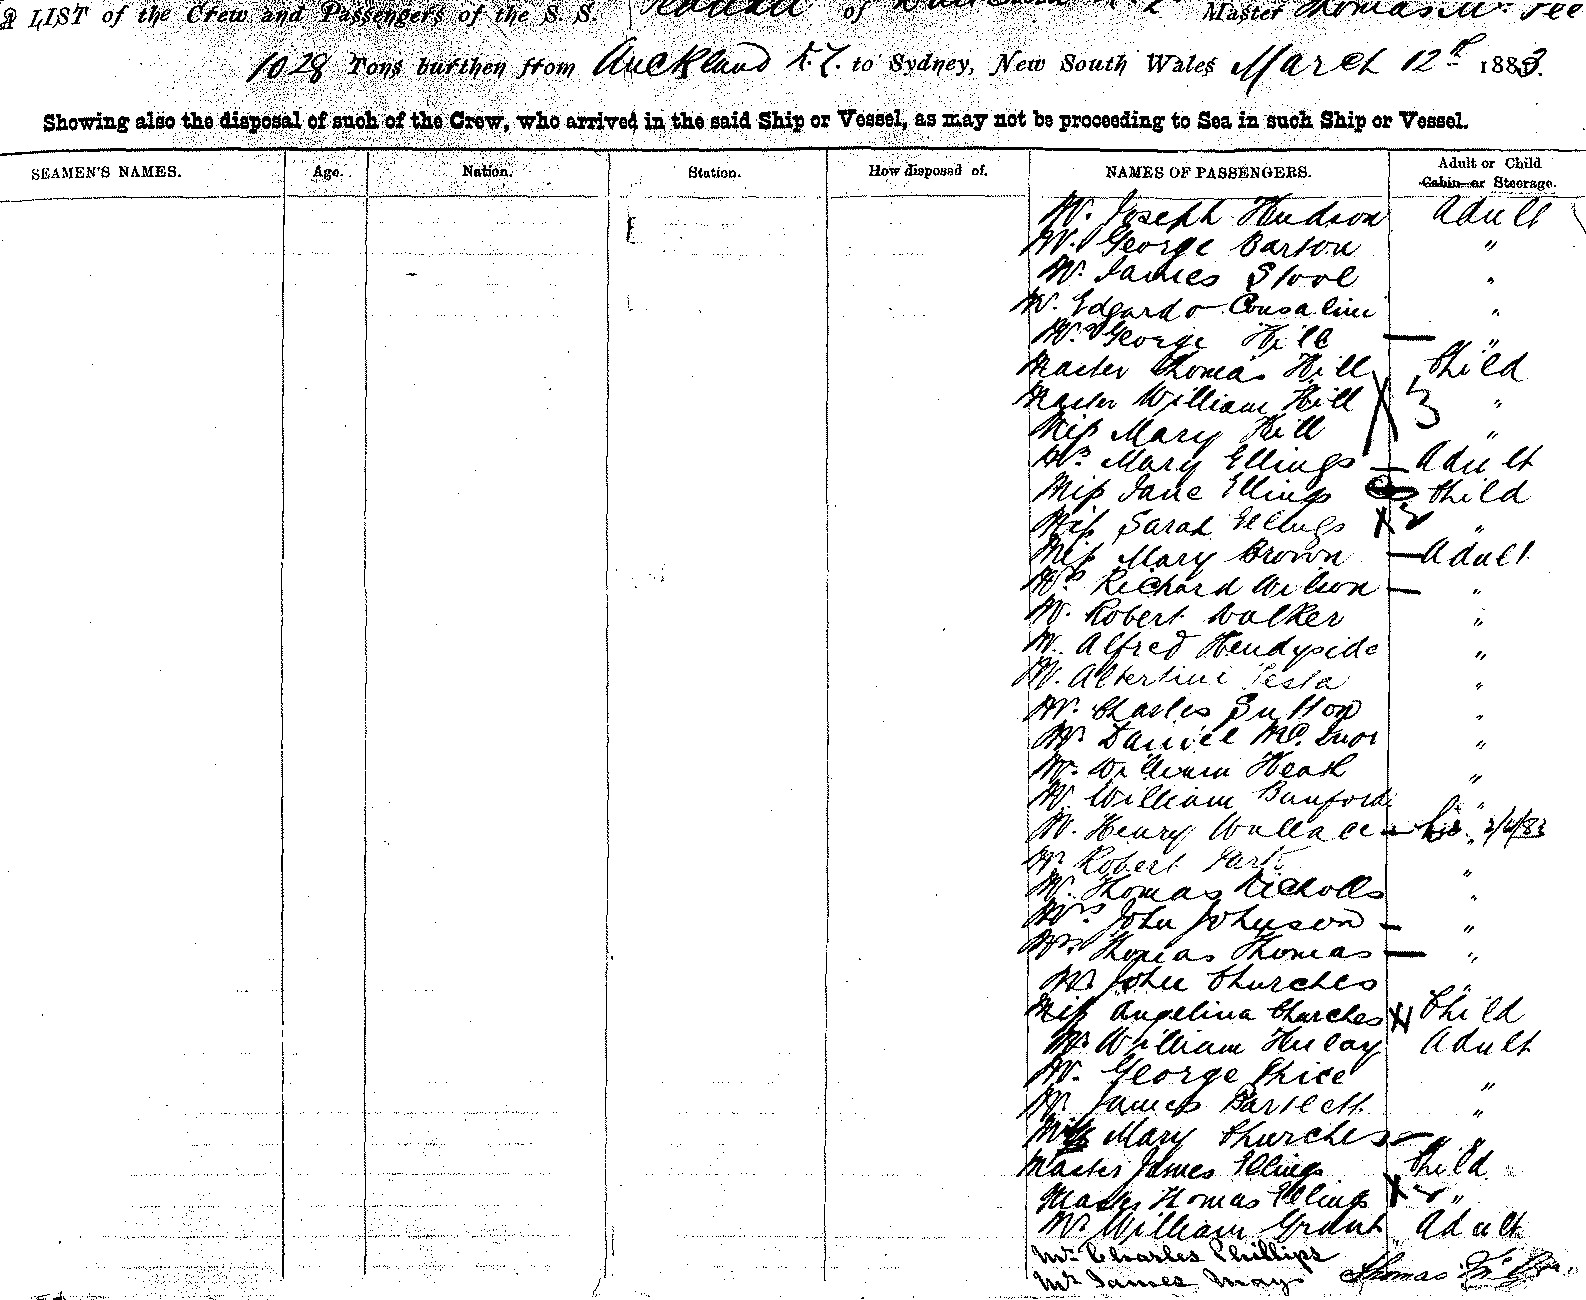 A LIST of the Crew and Passengers of the S. S. of Master Thomas Mc
1028 Tons burthen from Auckland N.Z. to Sydney, New South Wales March 12th 1883.
Showing also the disposal of such of the Crew, who arrived in the said Ship or Vessel, as may not be proceeding to Sea in such Ship or Vessel.
SEAMEN'S NAMES. Age. Nation. Station. How disposed of. NAMES OF PASSENGERS. Adult or Child Cabin or Steerage.
Mr. Joseph Hudson Adult
Mr. George Barton "
Mr. James Stool "
Mr. Edgardo Consalini "
Mrs George Hill "
Master Thomas Hill Child
Master William Hill 3 "
Miss Mary Hill "
Mrs Mary Ellings Adult
Miss Jane Ellings Child
Miss Sarah Ellings "
Miss Mary Brown Adult
Mrs Richard Wilson "
Mr. Robert Walker "
Mr. Alfred Hendyside "
Mr. Albertini Testa "
Mr. Charles Sutton "
Mr Daniel Mc. "
Mr. William Heath "
Mr. William Banford "
Mr. Henry Wallace " 2/4/83
Mr Robert "
Mr. Thomas Nicholls "
Mrs. John Johnson "
Mrs Thomas Thomas "
Mr John Churches "
Miss Angelina Churches Child
Mr William Adult
Mr. George Price "
Mr. James Bartlett "
Mary Churches "
Master James Ellings Child
Master Thomas Ellings "
Mr William Grant Adult
Mr. Charles Phillips
Mr James Mays Thomas